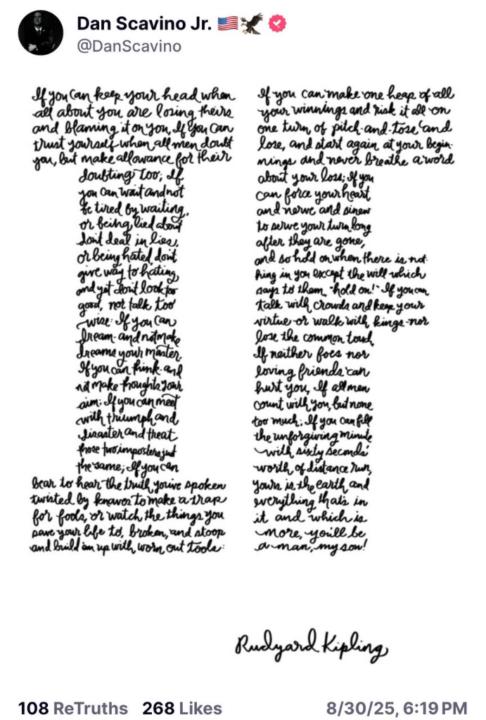 Dan Scavino Jr. 🇺🇸🦅
@DanScavino
If you can keep your head when
all about you are losing theirs
and blaming it on you, If you can
trust yourself when all men doubt
you, but make allowance for their
doubting too; If
you can wait and not
be tired by waiting,
or being lied about
don't deal in lies,
or being hated don't
give way to hating,
and yet don't look too
good, not talk too
wise: If you can
dream and not make
dreams your master,
If you can think and
not make thoughts your
aim: If you can meet
with triumph and
disaster and treat
those two imposters just
the same; If you can
bear to hear the truth you've spoken
twisted by knaves to make a trap
for fools, or watch the things you
gave your life to, broken, and stoop
and build 'em up with, worn out tools:
If you can make one heap of all
your winnings and risk it all on
one turn of pitch-and-toss and
lose, and start again at your begin-
nings and never breathe a word
about your loss; If you
can force your heart
and nerve and sinew
to serve your turn long
after they are gone,
and so hold on when there is not-
hing in you except the will which
says to them "hold on!" If you can
talk with crowds and keep your
virtue or walk with kings nor
lose the common touch,
If neither foes nor
loving friends can
hurt you, If all men
count with you, but none
too much; If you can fill
the unforgiving minute
with sixty seconds'
worth of distance run,
yours is the earth, and
everything that's in
it and which is
more, you'll be
a man, my son!
Rudyard Kipling
108 ReTruths 268 Likes 8/30/25, 6:19 PM